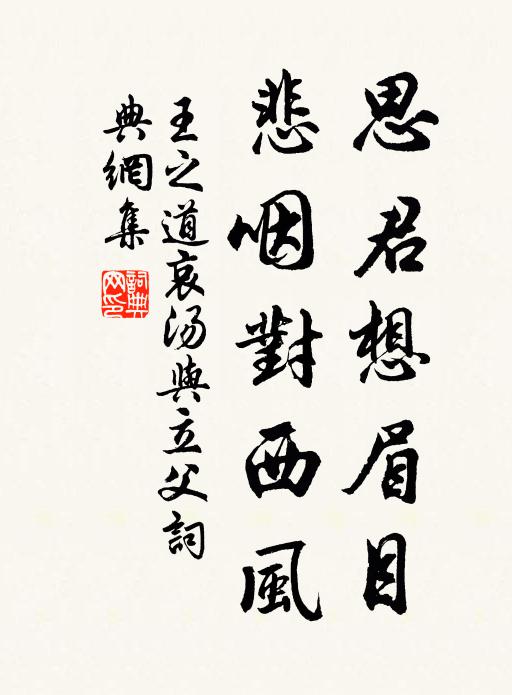 思君想眉目
悲咽對西風
王之道哀湯與立父詞
典網集
詞典
网印